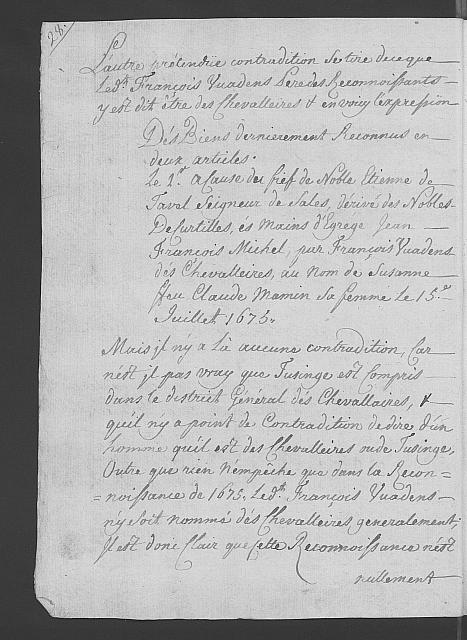 28.
L'autre prétendüe contradition se tire de ce que
Led.t François Vuadens Pere des Reconnoissants
y est dit être des Chevalleires & en voicy l'expression
Dés Biens dernierement Reconnus en
deux articles.
Le 1.er a Cause du fief de Noble Etienne de
Tavel Seigneur de Sales, dérivé des Nobles
De Curtilles, és mains d'Egrege Jean
François Michel, par François Vuadens
dés Chevalleires, au nom de Susanne
ffeu Claude Mamin sa femme Le 15.e
Juillet 1675.
Mais jl ny a Là aucune contradition, Car
nést jl pas vray que Tusinge est Compris
dans le district Général dés Chevallaires, &
qu'il ny a point de Contradition de dire d'un
homme qu'il est des Chevalleires ou de Tusinge,
Outre que rien n'empêche que dans la Recon=
=noissance de 1675. Led.t François Vuadens
n'y soit nommé dés Chevalleires generalement;
Jl est donc Clair que Cette Reconnoissance n'ést
nullement